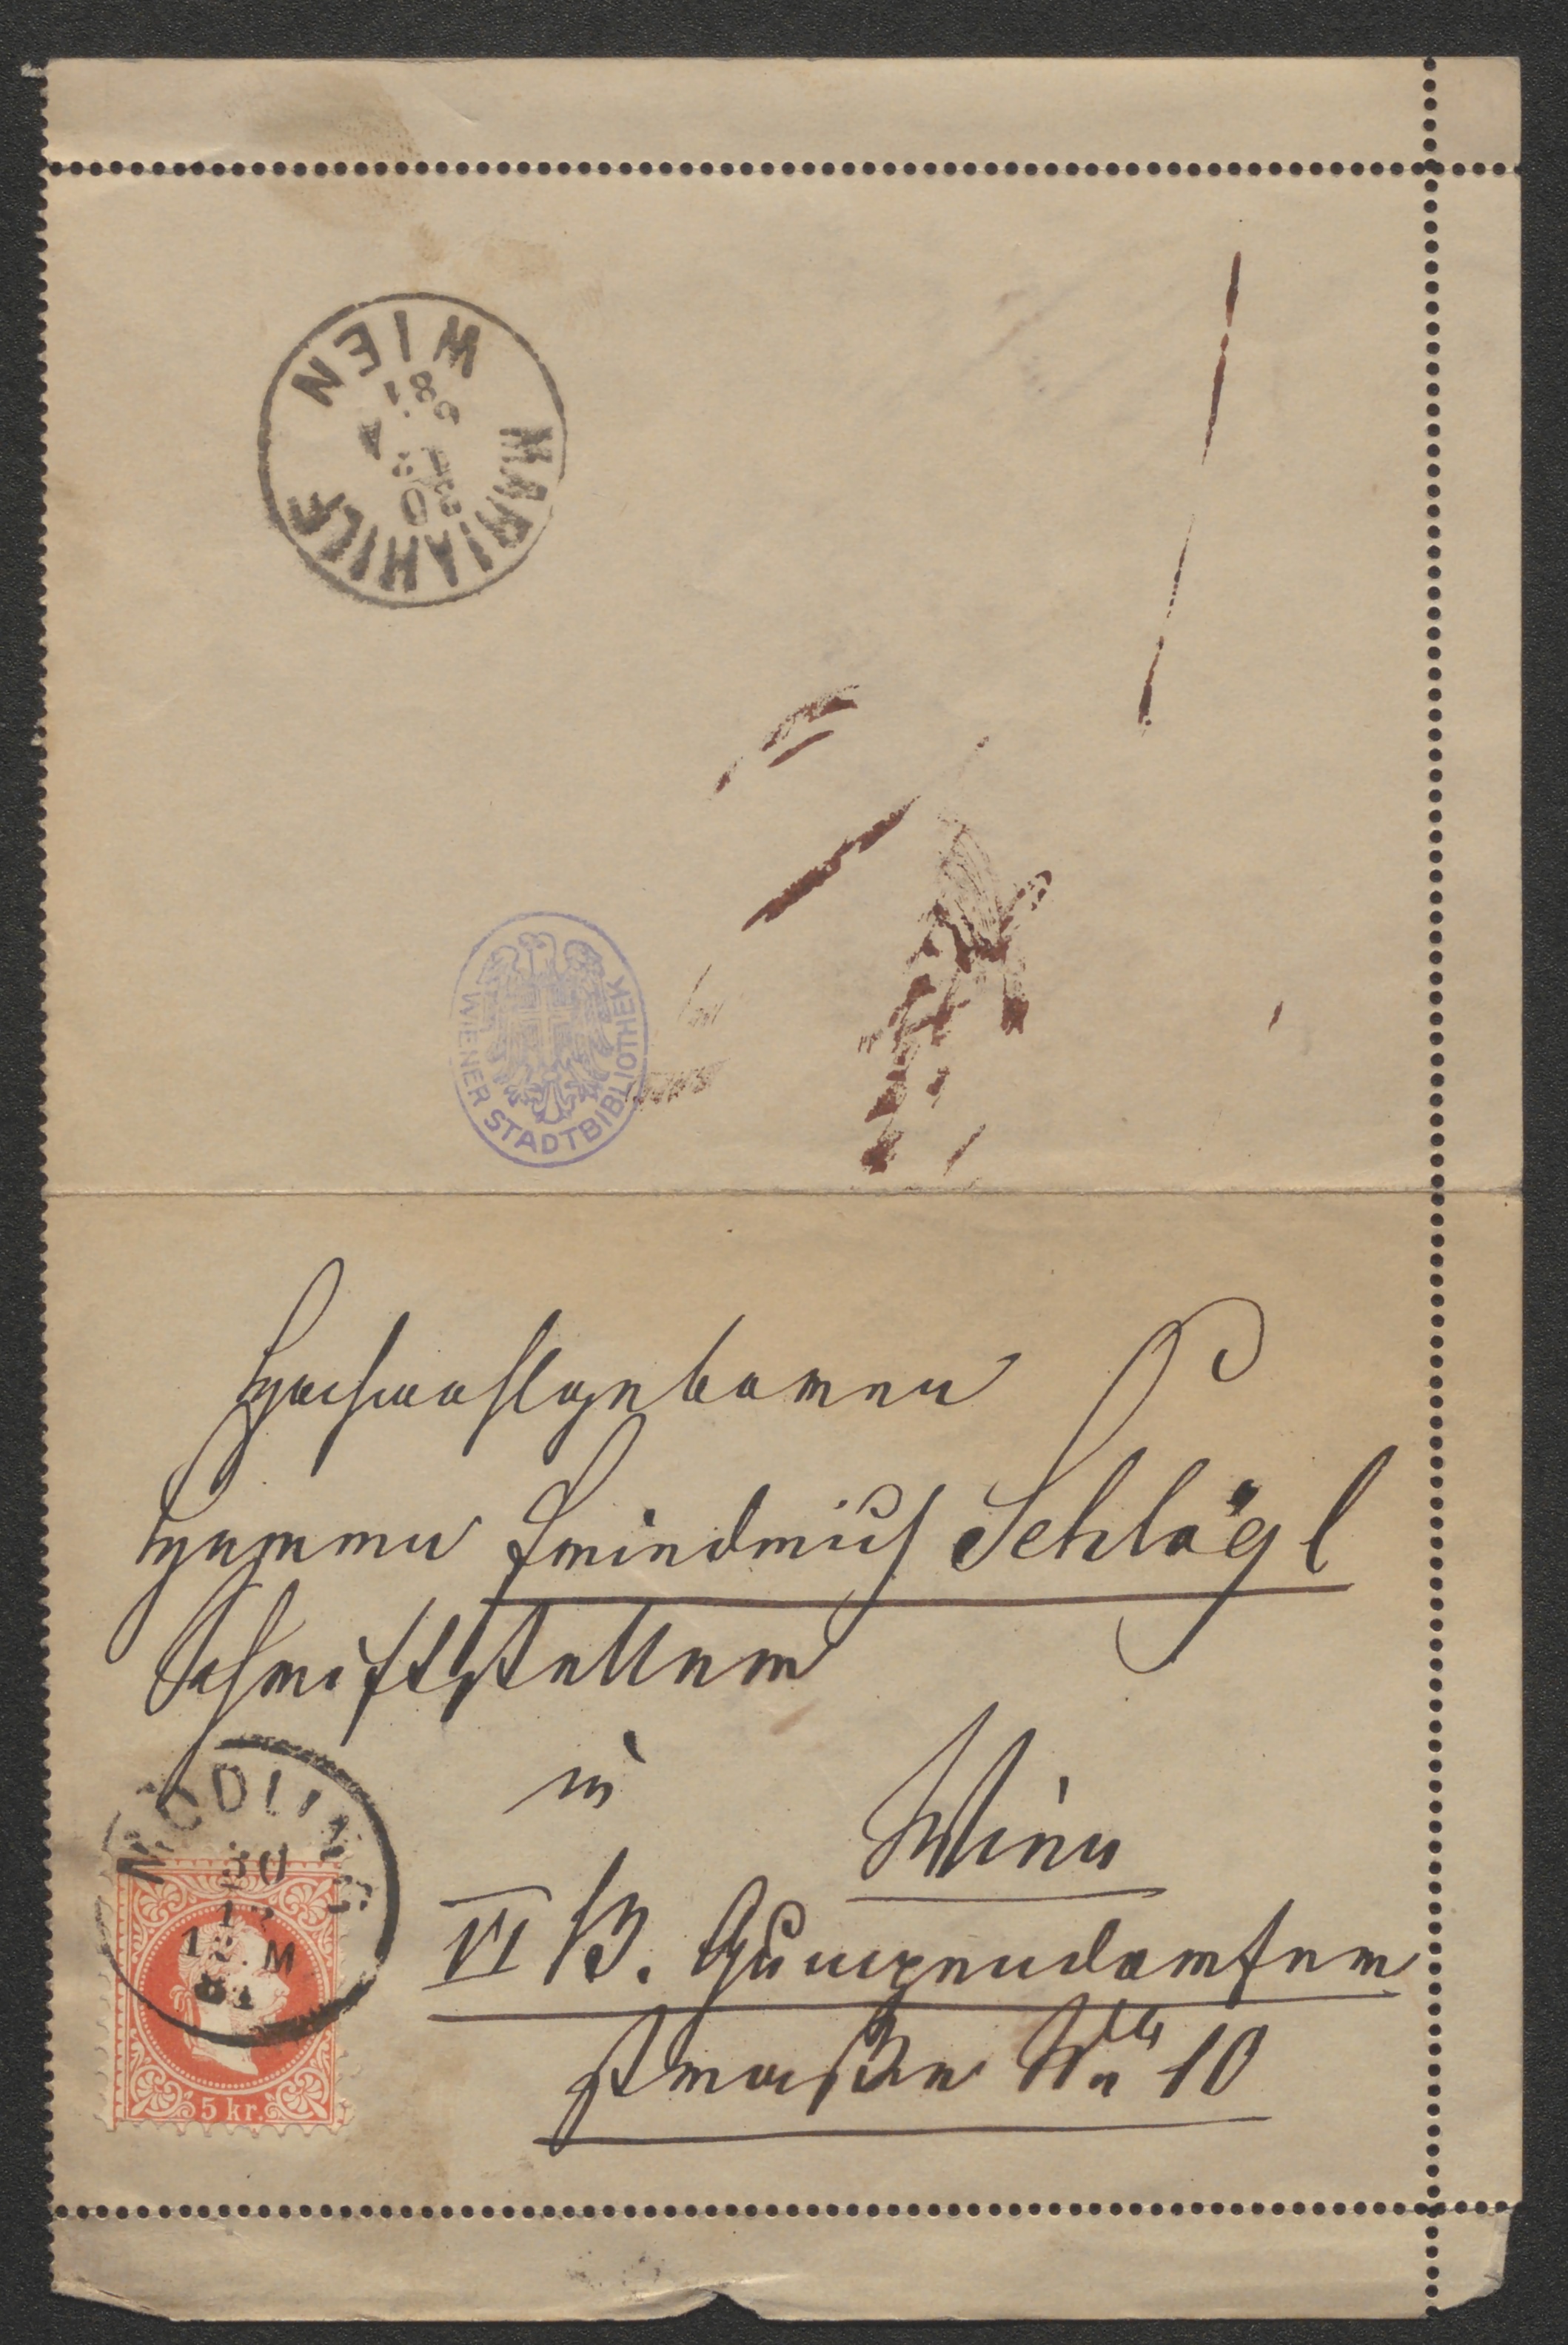 WIEN
MARIAHILF
WIENER STADTBIBLIOTHEK
Hochwohlgeboren
Herrn Friedrich Schlögl
Schriftsteller
in
Wien
VI B. Gumpendorfer
straße Nr 10
MÖDLING
30
12
12 M
81
5 kr.